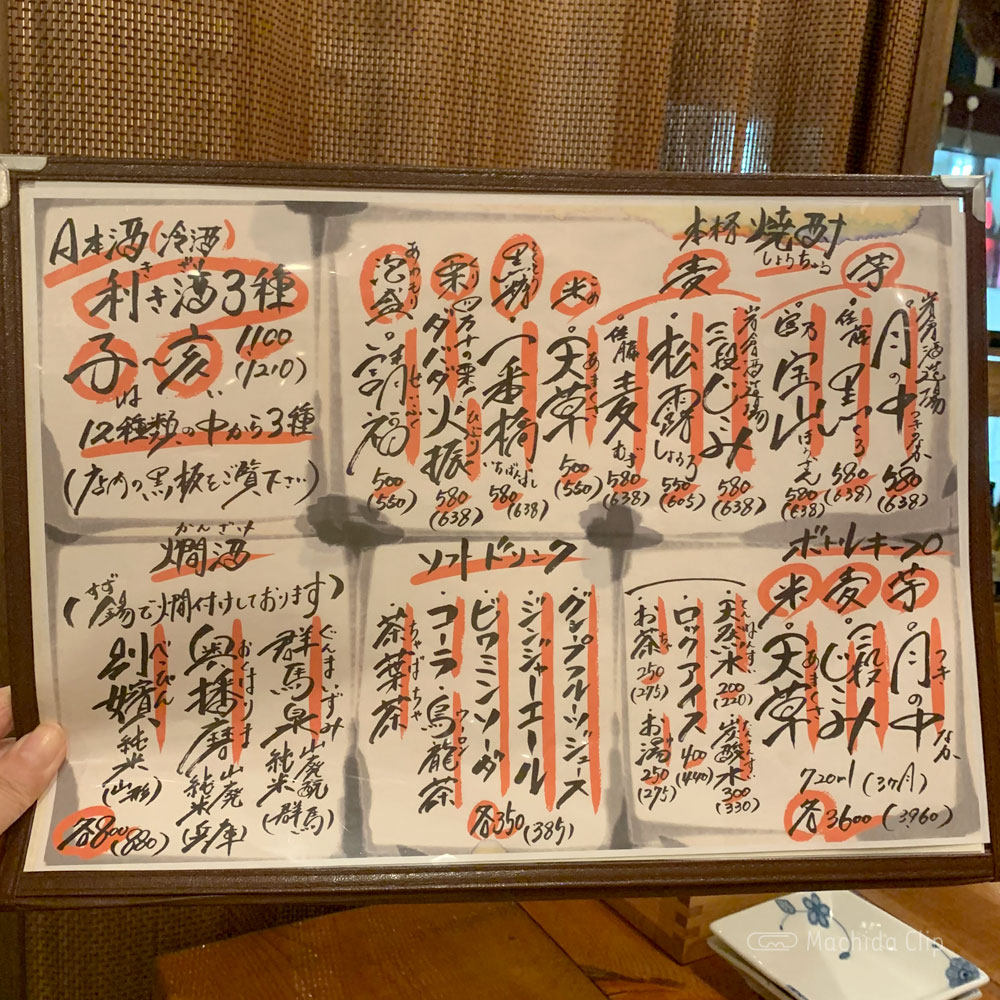 本格焼酎
しょうちゅう
芋
岩倉酒造場
月の中
つきのなか
580
(638)
佐藤
黒
くろ
580
(638)
富乃
宝山
ほうざん
580
(638)
麦
岩倉酒造場
三段じこみ
580
(638)
松露
しょうろ
550
(605)
佐藤
麦
むぎ
580
(638)
こめ
米
天草
あまくさ
500
(550)
こくとう
黒糖
一番橋
いちばんばし
580
(638)
くり
栗
四万十の栗
ダバダ火振
ひぶり
580
(638)
あわもり
泡盛
500
(550)
日本酒(冷酒)
利き酒3種
き ざけ
子〜亥
1100
(1210)
ね い
は
12種類の中から3種
(店内の黒板をご覧下さい)
ボトルキープ
芋
月の中
つき なか
麦
三段じこみ
米
天草
あまくさ
720ml(3ヶ月)
各3600(3960)
天然水
てんねんすい
200
(220)
炭酸水
たんさんすい
300
(330)
ロックアイス
400
(440)
お茶
ちゃ
250
(275)
お湯
ゆ
250
(275)
ソフトドリンク
グレープフルーツジュース
ジンジャーエール
ビワミンソーダ
コーラ・烏龍茶
ウーロン
茶葉茶
ちゃばちゃ
各350(385)
かんざけ
燗酒
すず
(錫で燗付けしております)
群馬泉
ぐんまいずみ
山廃酛
純米
(群馬)
奥播磨
おくはりま
山廃
純米
(兵庫)
別嬪
べっぴん
純米
(山形)
各800(880)
Machida Clip